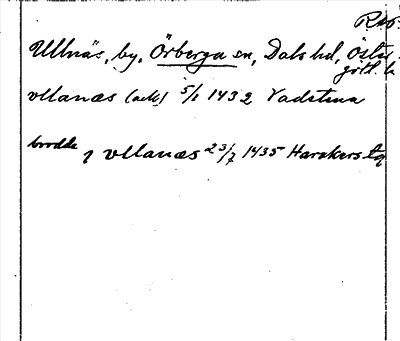 Ullnäs, by, Örberga sn, Dals hd, Öster-
götl. l.
vllanæs (ack) 5/1 1432 Vadstena
brodde j vllanæs 23/7 1435 Harakers tg